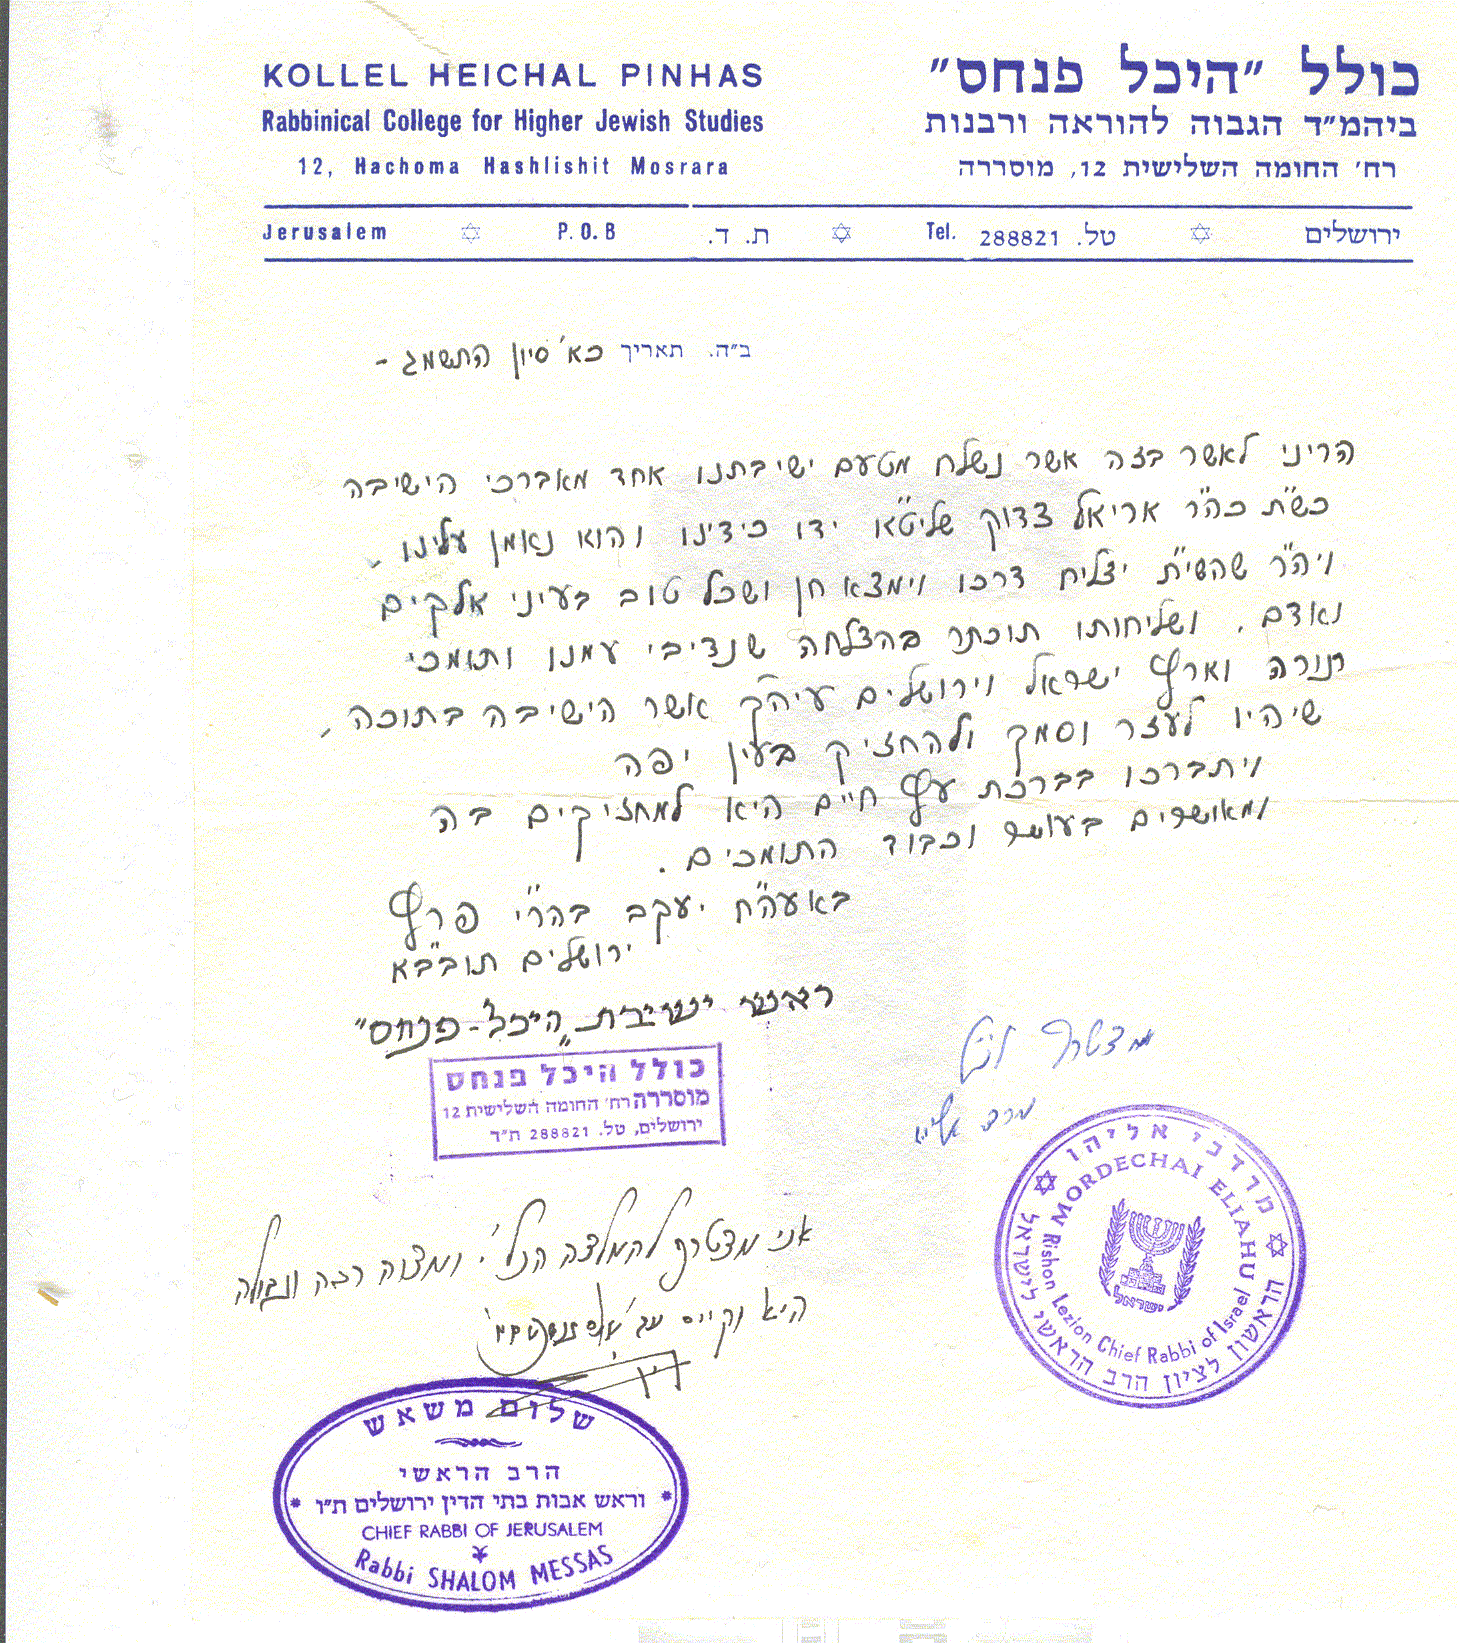 KOLLEL HEICHAL PINHAS
Rabbinical College for Higher Jewish Studies
12, Hachoma Hashlishit Mosrara
כולל "היכל פנחס"
ביהמ"ד הגבוה להוראה ורבנות
רח' החומה השלישית 12, מוסררה
Jerusalem P.O.B ת. ד. Tel. 288821 טל. ירושלים
ב"ה. תאריך כא' סיון התשמג -
הריני לאשר בזה אשר נשלח מטעם ישיבתנו אחד מאברכי הישיבה
כש"ת כה"ר אריאל צדוק שליט"א ידו כידינו והוא נאמן עלינו
ויה"ר שהשי"ת יצליח דרכו וימצא חן ושכל טוב בעיני אלקים
ואדם. ושליחותו תוכתר בהצלחה שנדיבי עמנו ותומכי
תורה וארץ ישראל וירושלים עיה"ק אשר הישיבה בתוכה,
שיהיו לעזר וסמך ולהחזיק בעין יפה
ויתברכו בברכת עץ חיים היא למחזיקים בה
ומאושרים בעושר וכבוד התומכים.
באעה"ח יעקב בהר"י פרץ
ירושלים תובב"א
ראש ישיבת "היכל-פנחס"
כולל היכל פנחס
מוסררה רח' החומה השלישית 12
ירושלים, טל. 288821 ת"ד
מצטרף
אני מצטרף להמלצה הנ"ל, ומצוה רבה וגדולה
היא
מרדכי אליהו
הראשון לציון הרב הראשי לישראל
MORDECHAI ELIAHU
Rishon Lezion Chief Rabbi of Israel
ישראל
שלום משאש
הרב הראשי
וראש אבות בתי הדין ירושלים ת"ו
CHIEF RABBI OF JERUSALEM
Rabbi SHALOM MESSAS